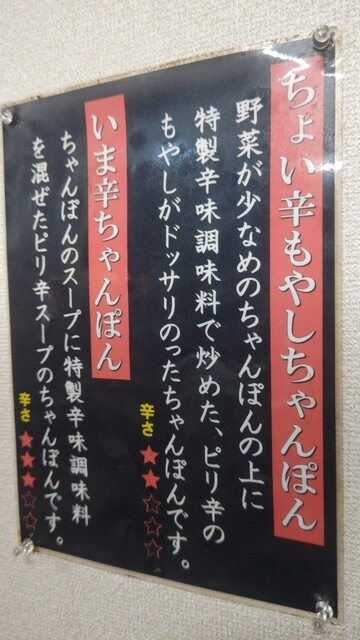 ちょい辛もやしちゃんぽん
野菜が少なめのちゃんぽんの上に
特製辛味調味料で炒めた、ピリ辛の
もやしがドッサリのったちゃんぽんです。
辛さ★★☆☆☆
いま辛ちゃんぽん
ちゃんぽんのスープに特製辛味調味料
を混ぜたピリ辛スープのちゃんぽんです。
辛さ★★★☆☆